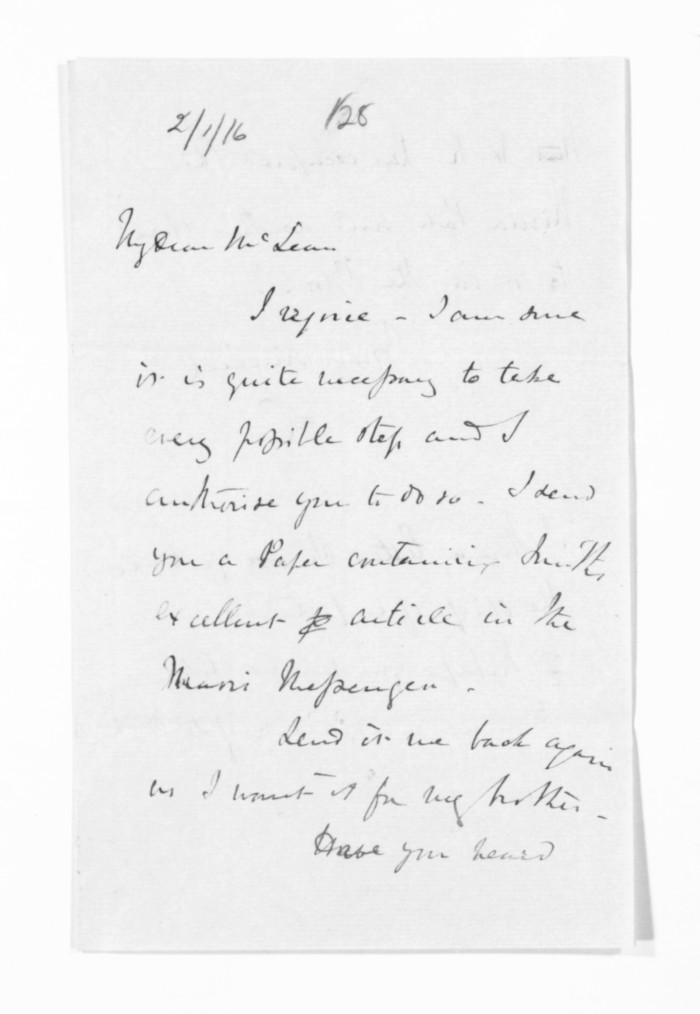 2/1/16 128
My dear McLean
I rejoice - I am sure
it is quite necessary to take
every possible step and I
authorise you to do so - I send
you a Paper containing Smith's
excellent article in the
Maori Messenger -
Send it me back again
as I want it for my brother -
Have you heard